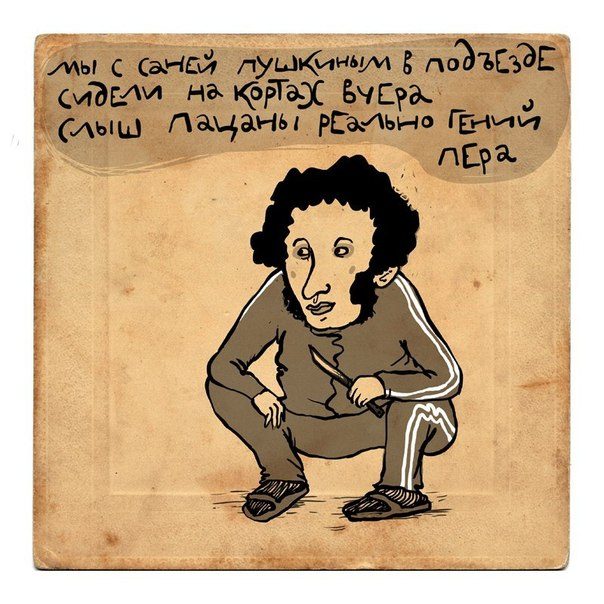 мы с саней пушкиным в подъезде
сидели на кортах вчера
слыш пацаны реально гений
пера